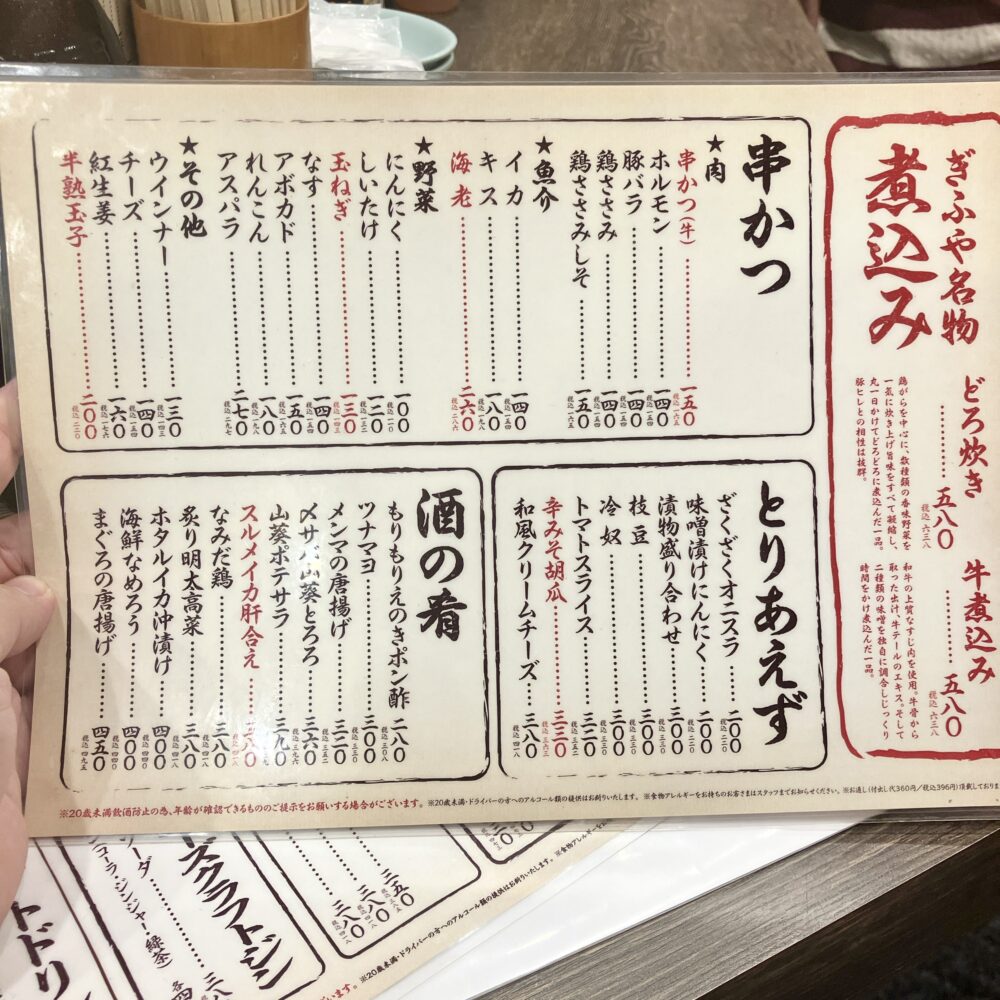 ぎふや名物
煮込み
どろ炊き………五八〇
税込 六三八
鶏がらを中心に、数種類の香味野菜を
一気に炊き上げ旨味をすべて凝縮し、
丸一日かけてどろどろに煮込んだ一品。
豚ヒレとの相性は抜群。
牛煮込み………五八〇
税込 六三八
和牛の上質なすじ肉を使用。牛骨から
取った出汁、牛テールのエキス。そして
二種類の味噌を独自に調合しじっくり
時間をかけ煮込んだ一品。
串かつ
★肉
串かつ(牛)………一五〇
税込 一六五
ホルモン………一四〇
税込 一五四
豚バラ………一四〇
税込 一五四
鶏ささみ………一四〇
税込 一五四
鶏ささみしそ………一五〇
税込 一六五
★魚介
イカ………一四〇
税込 一五四
キス………一八〇
税込 一九八
海老………二六〇
税込 二八六
★野菜
にんにく………一〇〇
税込 一一〇
しいたけ………一二〇
税込 一三二
玉ねぎ………一三〇
税込 一四三
なす………一四〇
税込 一五四
アボカド………一五〇
税込 一六五
れんこん………一八〇
税込 一九八
アスパラ………二七〇
税込 二九七
★その他
ウインナー………一三〇
税込 一四三
チーズ………一四〇
税込 一五四
紅生姜………一六〇
税込 一七六
半熟玉子………二〇〇
税込 二二〇
とりあえず
ざくざくオニスラ………二〇〇
税込 二二〇
味噌漬けにんにく………二〇〇
税込 二二〇
漬物盛り合わせ………三〇〇
税込 三三〇
枝豆………三〇〇
税込 三三〇
冷奴………三〇〇
税込 三三〇
トマトスライス………三二〇
税込 三五二
辛みそ胡瓜………三三〇
税込 三六三
和風クリームチーズ………三八〇
税込 四一八
酒の肴
もりもりえのきポン酢 二八〇
ツナマヨ………三〇〇
税込 三三〇
メンマの唐揚げ………三二〇
税込 三五二
〆サバ山葵とろろ………三六〇
税込 三九六
山葵ポテサラ………三九〇
税込 四二九
スルメイカ肝合え………三八〇
税込 四一八
なみだ鶏………三八〇
税込 四一八
炙り明太高菜………三八〇
税込 四一八
ホタルイカ沖漬け………四〇〇
税込 四四〇
海鮮なめろう………四〇〇
税込 四四〇
まぐろの唐揚げ………四五〇
税込 四九五
※20歳未満飲酒防止の為、年齢が確認できるもののご提示をお願いする場合がございます。※20歳未満・ドライバーの方へのアルコール類の提供はお断りいたします。※食物アレルギーをお持ちのお客さまはスタッフまでお知らせください。※お通し(付出し代360円/税込396円)頂戴しております
三五〇
三八〇
三八〇
スクラフトジン
ソーダ
コーラ・ジンジャー・緑茶)
各四
トドリ
※20歳未満・ドライバーの方へのアルコール類の提供はお断りいたします。※食物アレルギーを